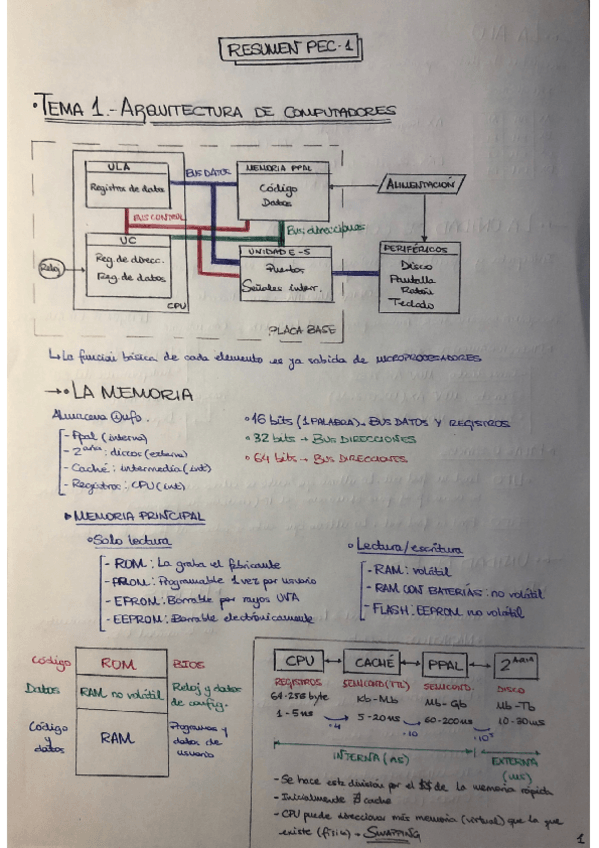 RESUMEN PEC-1
• TEMA 1.- ARQUITECTURA DE COMPUTADORES
ULA
Registros de datos
BUS DATOS
MEMORIA PPAL
Código
Datos
ALIMENTACIÓN
BUS CONTROL
Bus direcciones
UC
Reg. de direcc.
Reg. de datos
CPU
Reloj
UNIDAD E-S
Puertos
Señales interr.
PERIFÉRICOS
Disco
Pantalla
Ratón
Teclado
PLACA BASE
↳ La función básica de cada elemento es ya sabida de MICROPROCESADORES
→• LA MEMORIA
Almacena info.
- Ppal (interna)
- 2arias: discos (externa)
- Caché: intermedia (int)
- Registros: CPU (int)
• 16 bits (1 PALABRA) - BUS DATOS Y REGISTROS
• 32 bits → BUS DIRECCIONES
• 64 bits → BUS DIRECCIONES
▸ MEMORIA PRINCIPAL
• Solo lectura
- ROM: La graba el fabricante
- PROM: Programable 1 vez por usuario
- EPROM: Borrable por rayos UVA
- EEPROM: Borrable electrónicamente
• Lectura/escritura
- RAM: volátil
- RAM CON BATERÍAS: no volátil
- FLASH: EEPROM no volátil
Código
ROM
BIOS
Datos
RAM no volátil
Reloj y datos de config.
Código y datos
RAM
Programas y datos de usuario
CPU ↔ CACHÉ ↔ PPAL ↔ 2ARIA
REGISTROS SEMICOND (TTL) SEMICOND. DISCO
64-256 byte Kb-Mb Mb-Gb Mb-Tb
1-5ns 5-20ns 60-200ns 10-30ms
·4 ·10 ·10⁵
INTERNA (ns) EXTERNA (ms)
- Se hace esta división por el $$ de la memoria rápida
- Inicialmente ∄ cache
- CPU puede direccionar más memoria (virtual) que la que
existe (física) → SWAPPING
1